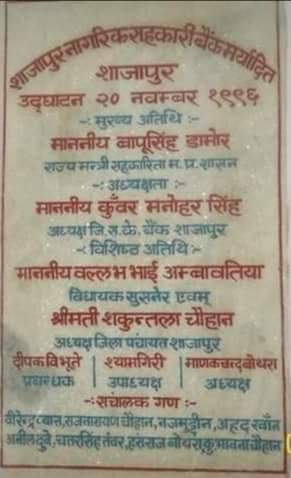 शाजापुर नागरिक सहकारी बैंक मर्यादित
शाजापुर
उद्घाटन २० नवम्बर १९९६
-: मुख्य अतिथि :-
माननीय बापूसिंह डामोर
राज्य मन्त्री सहकारिता म.प्र.शासन
-: अध्यक्षता :-
माननीय कुँवर मनोहर सिंह
अध्यक्ष जि.स.के. बैंक शाजापुर
- विशिष्ठ अतिथि -
माननीय वल्लभ भाई अम्बावतिया
विधायक सुसनेर एवम्
श्रीमती शकुन्तला चौहान
अध्यक्ष जिला पंचायत शाजापुर
दीपक विभूते | श्यामगिरी | माणकचन्द बोथरा
प्रबन्धक | उपाध्यक्ष | अध्यक्ष
-: संचालक गण :-
वीरेन्द्र व्यास, सजनारायण चौहान, नजमुद्दीन, अहद खाँन
अनील दुबे, चतरसिंह तंवर, हंसराज बोथरा, कु. भावना चौहान